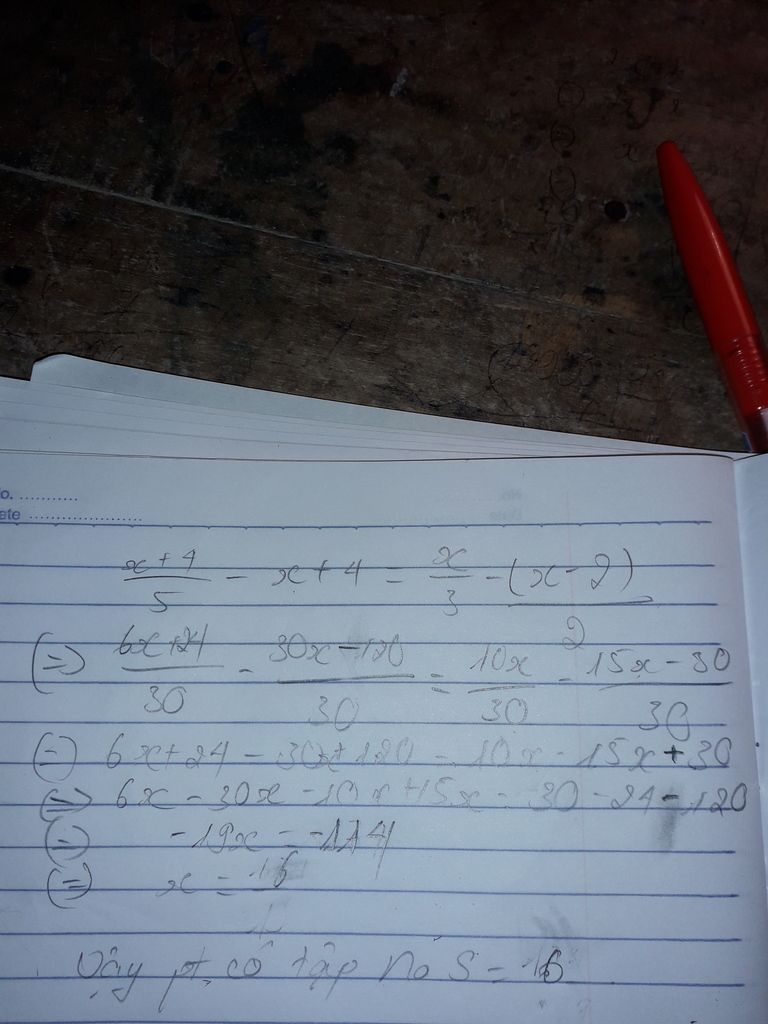 o. ...........
ate ......................
(x+4)/5 - x + 4 = x/3 - (x-2)/2
(=) (6x+24)/30 - (30x-120)/30 = 10x/30 - (15x-30)/30
(=) 6x+24 - 30x+120 = 10x - 15x+30
(=) 6x - 30x - 10x + 15x = 30 - 24 - 120
(=) -19x = -114
(=) x =
Vậy pt có tập no S =